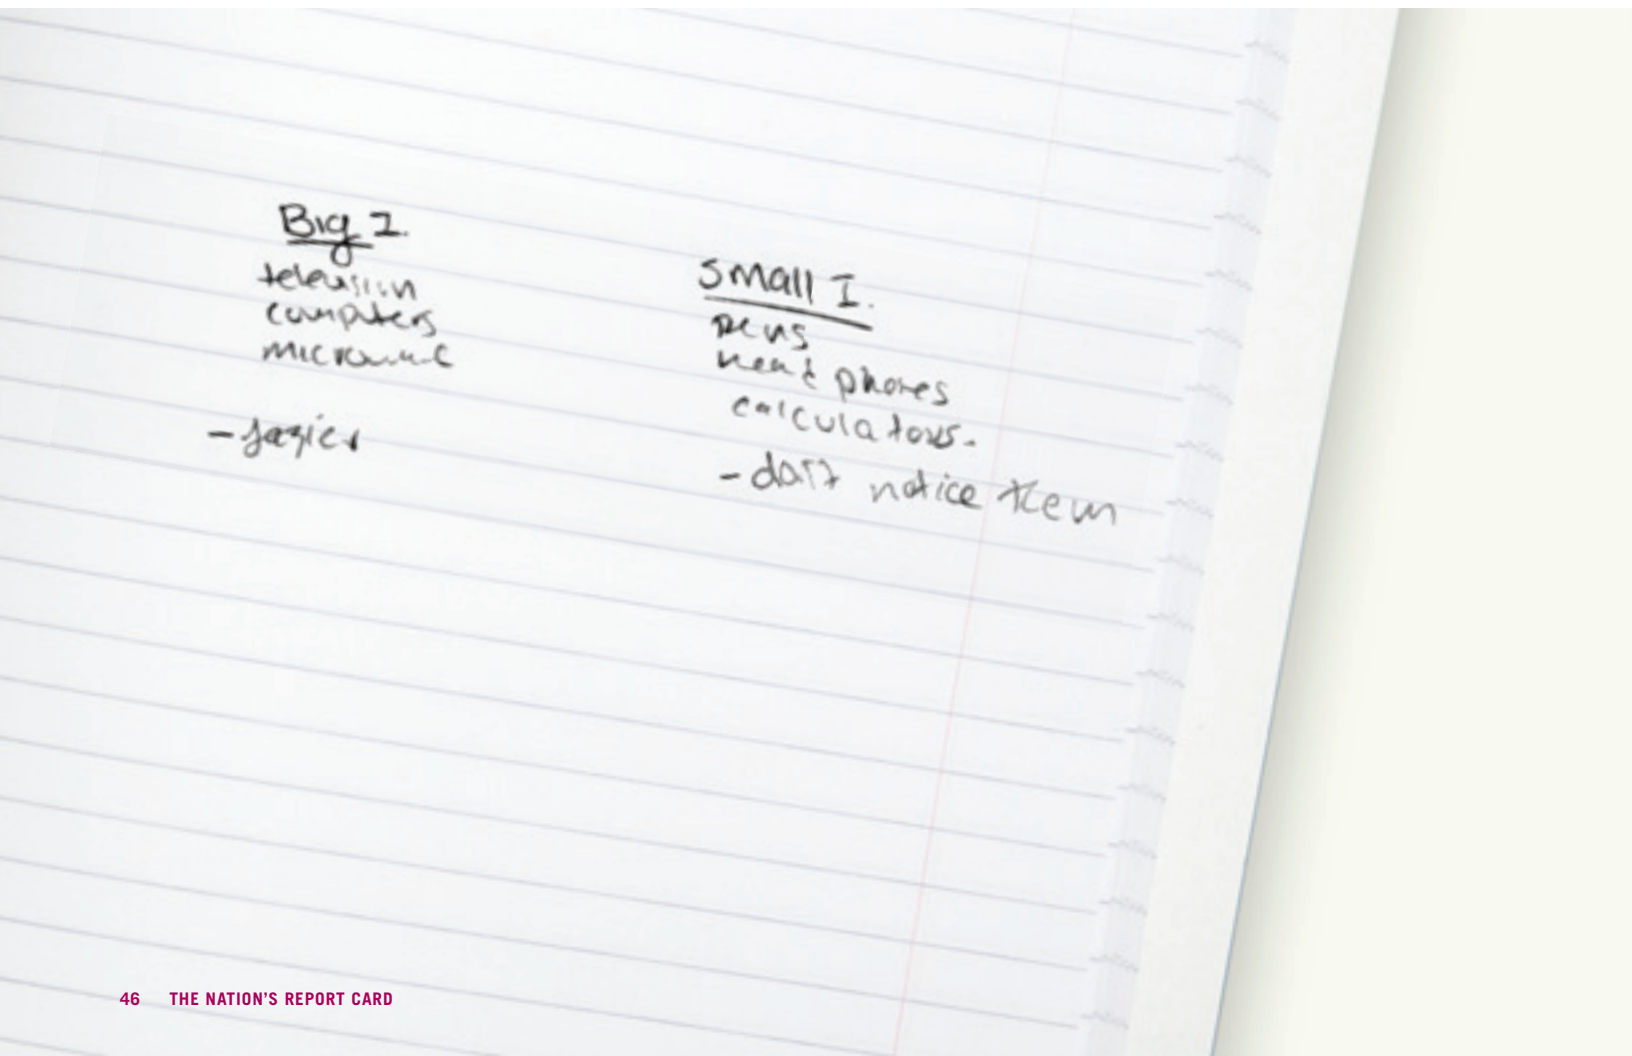 Big I.
television
computers
microwave
Small I.
pens
head phones
calculators.
- don't notice them
46 THE NATION'S REPORT CARD